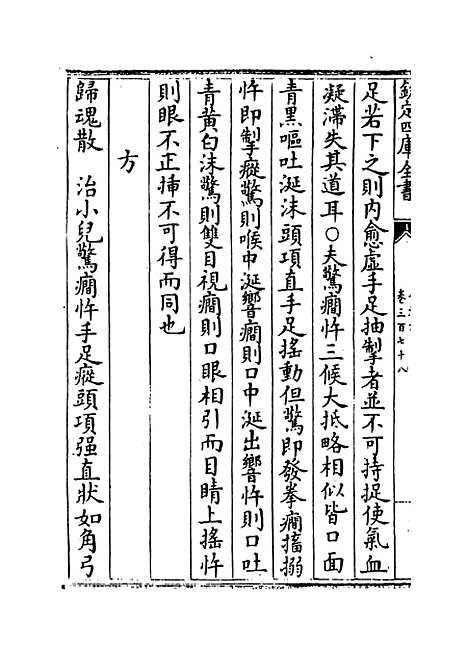 欽定四庫全書
卷三百七十八
足若下之則内愈虚手足抽掣者並不可持捉使氣血
凝滯失其道耳○夫驚癎忤三候大抵略相似皆口面
青黑嘔吐涎沫頭項直手足搖動但驚即發拳癎搐搦
忤即掣瘲驚則喉中涎響癎則口中涎出響忤則口吐
青黄白沫驚則雙目視癎則口眼相引而目睛上搖忤
則眼不正揷不可得而同也
方
歸魂散　治小兒驚癎忤手足瘲頭項强直狀如角弓